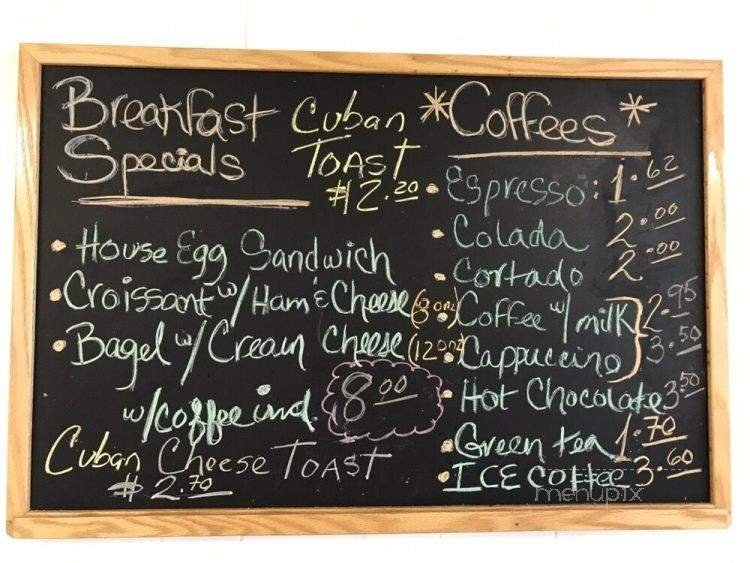 Breakfast
Specials
Cuban
Toast
$2.20
• House Egg Sandwich
• Croissant w/ Ham & Cheese
• Bagel w/ Cream Cheese
w/coffee ind. 8.00
Cuban Cheese Toast
$2.70
*Coffees*
• Espresso: 1.62
• Colada 2.00
• Cortado 2.00
(8onz) • Coffee w/ milk 2.95
(12onz) • Cappuccino 3.50
• Hot Chocolate 3.50
• Green tea 1.70
• ICE Coffee 3.60
menupix